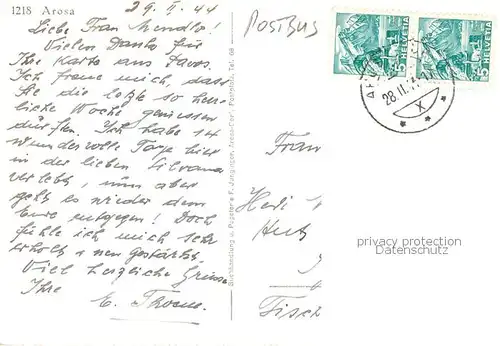 1218 Arosa
29. II. 44
Liebe Frau Mendler!
Vielen Dank für
Ihre Karte aus Davos.
Ich freue mich, dass
Sie die letzte so herr-
liche Woche geniessen
durften. Ich habe 14
wundervolle Tage hier
in der lieben Silvana
verlebt, nun aber
geht es wieder dem
Ende entgegen! Doch
fühle ich mich sehr
erholt & neu gestärkt.
Viel herzliche Grüsse
Ihre
E.
POSTBUS
HELVETIA 5
HELVETIA 5
28. II.
X
Frau
Hedi
Fisch
privacy protection
Datenschutz